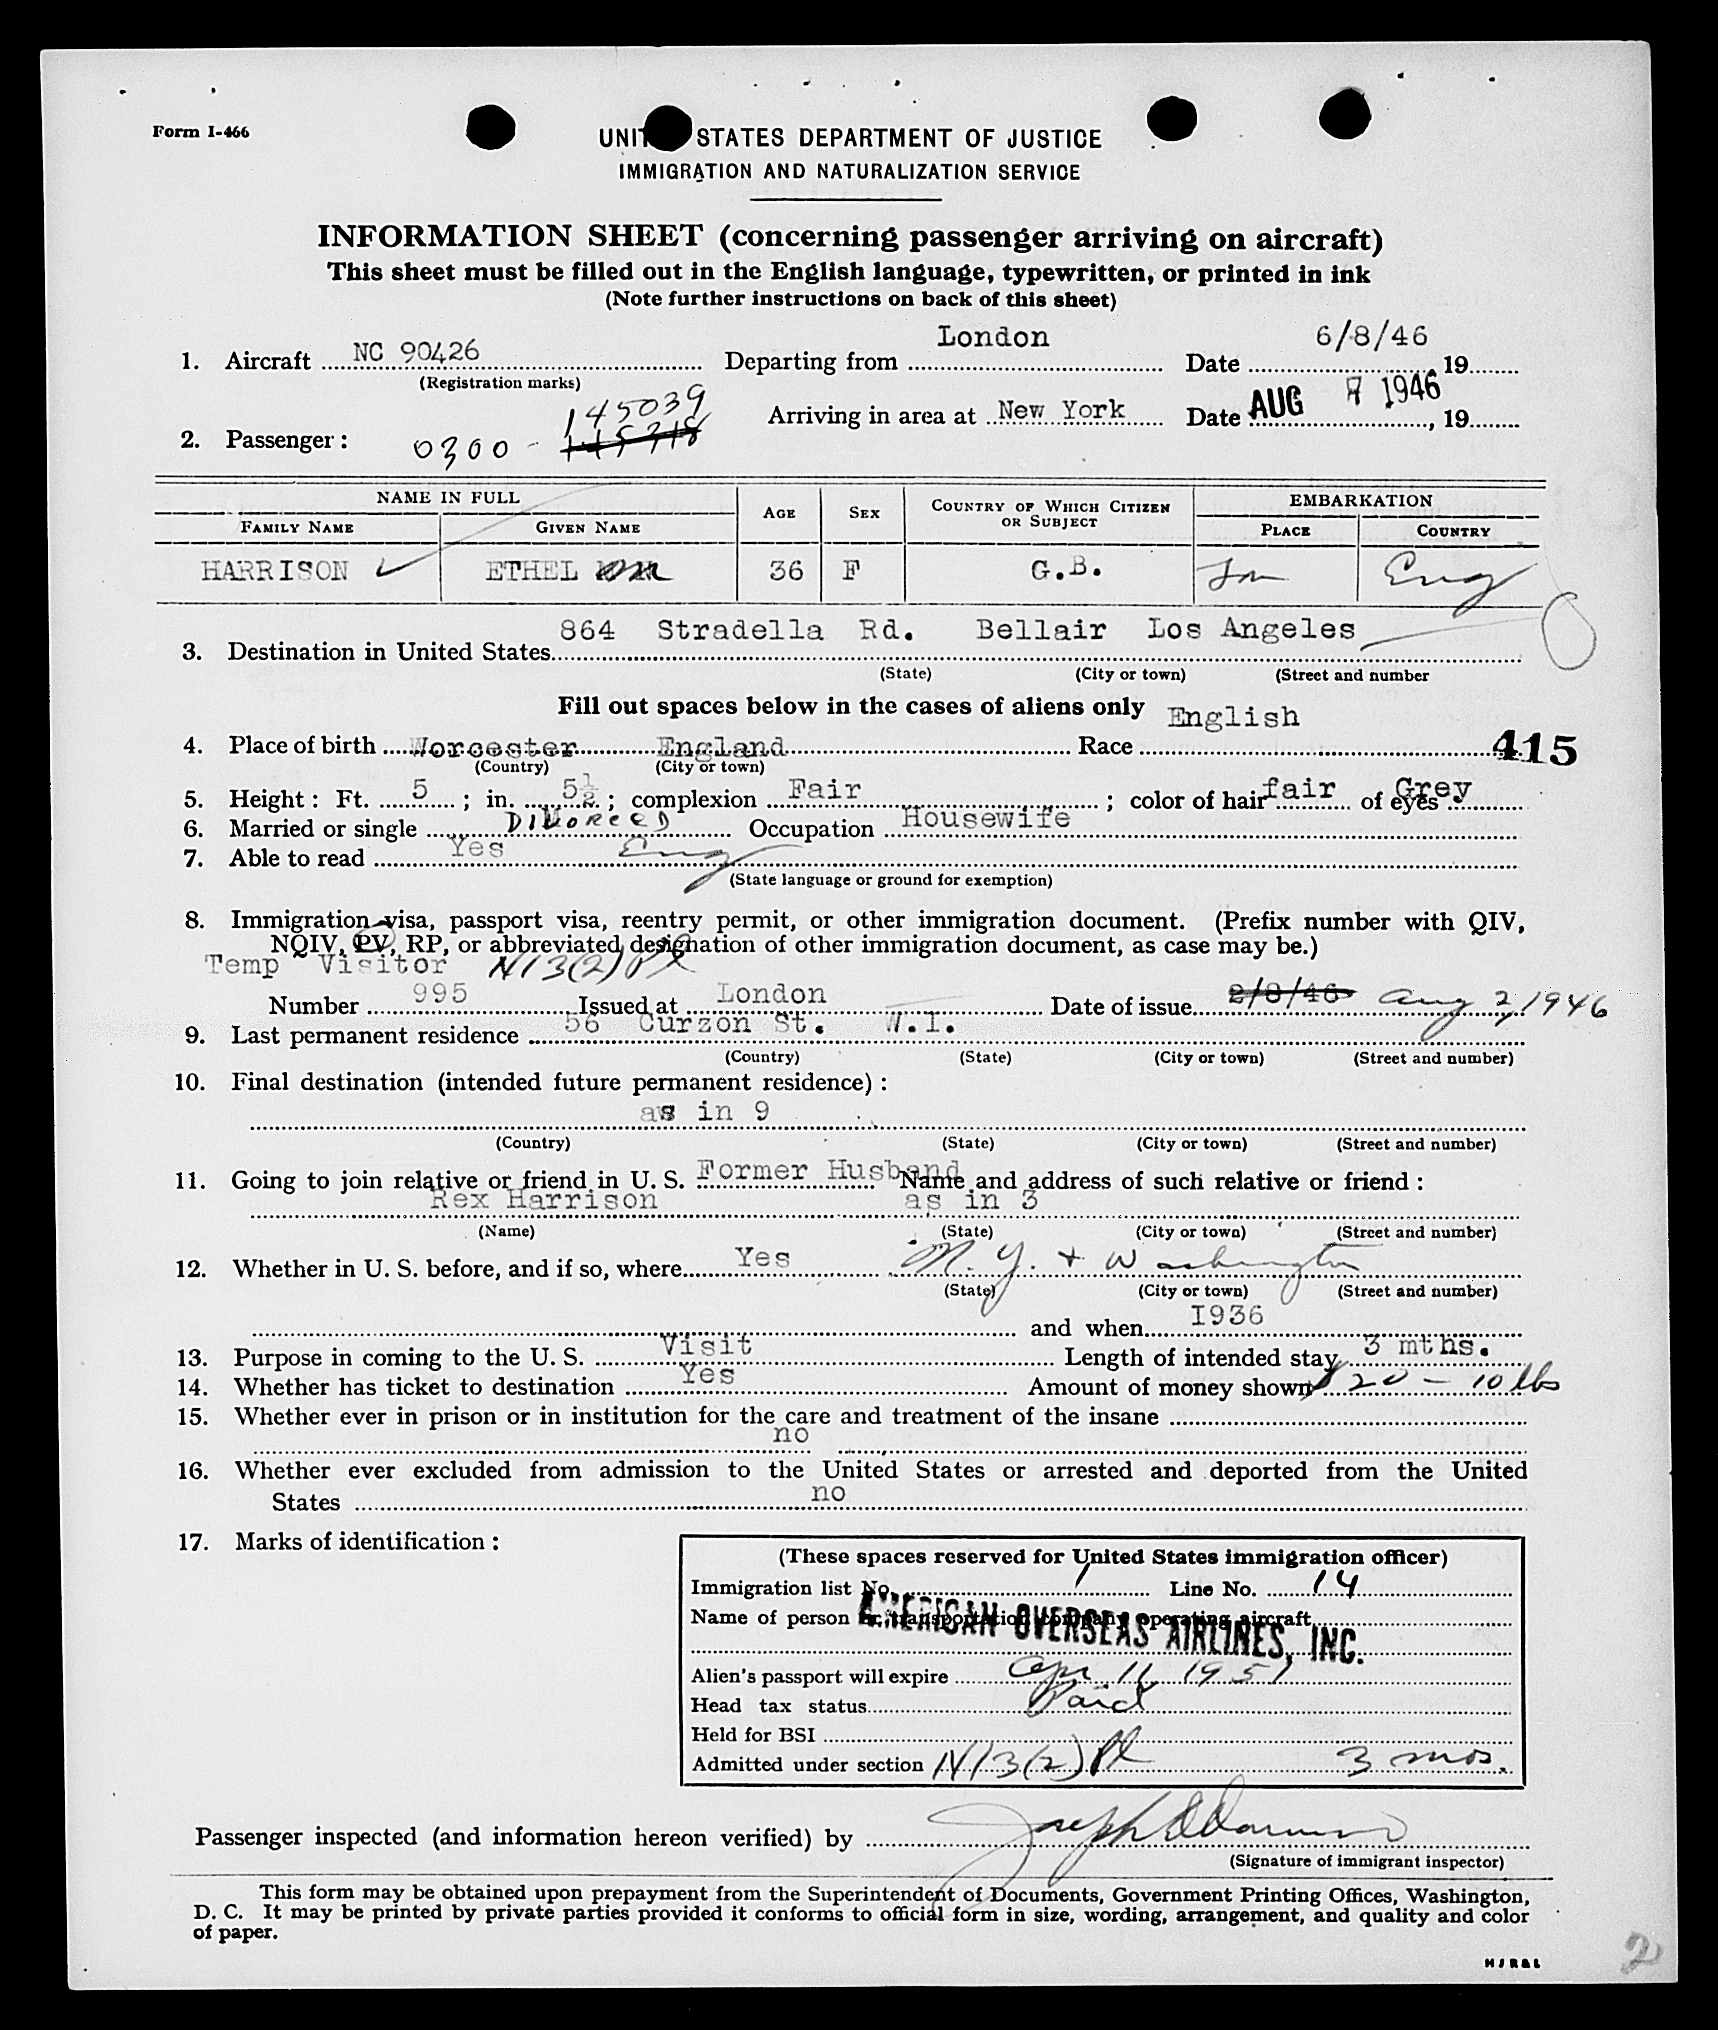 Form I-466
UNIT STATES DEPARTMENT OF JUSTICE
IMMIGRATION AND NATURALIZATION SERVICE
INFORMATION SHEET (concerning passenger arriving on aircraft)
This sheet must be filled out in the English language, typewritten, or printed in ink
(Note further instructions on back of this sheet)
1. Aircraft NC 90426 Departing from London Date 6/8/46, 19
(Registration marks)
Arriving in area at New York Date AUG 7 1946, 19
145039
2. Passenger: 0300 -
NAME IN FULL AGE SEX COUNTRY OF WHICH CITIZEN OR SUBJECT EMBARKATION
FAMILY NAME GIVEN NAME PLACE COUNTRY
HARRISON ETHEL 36 F G.B. Lon Eng
3. Destination in United States 864 Stradella Rd. Bellair Los Angeles
(State) (City or town) (Street and number
Fill out spaces below in the cases of aliens only
4. Place of birth Worcester England Race English
(Country) (City or town)
415
5. Height: Ft. 5; in. 5½; complexion Fair; color of hair fair of eyes Grey
6. Married or single DIVORCED Occupation Housewife
7. Able to read Yes Eng
(State language or ground for exemption)
8. Immigration visa, passport visa, reentry permit, or other immigration document. (Prefix number with QIV,
NQIV, PV, RP, or abbreviated designation of other immigration document, as case may be.)
Temp Visitor N13(2)Pl
Number 995 Issued at London Date of issue 2/8/46 Aug 2, 1946
9. Last permanent residence 56 Curzon St. W.I.
(Country) (State) (City or town) (Street and number)
10. Final destination (intended future permanent residence):
as in 9
(Country) (State) (City or town) (Street and number)
11. Going to join relative or friend in U. S. Former Husband Name and address of such relative or friend:
Rex Harrison as in 3
(Name) (State) (City or town) (Street and number)
12. Whether in U. S. before, and if so, where Yes N. Y. + Washington
(State) (City or town) (Street and number)
and when I936
13. Purpose in coming to the U. S. Visit Length of intended stay 3 mths.
14. Whether has ticket to destination Yes Amount of money shown $20 - 10 lbs
15. Whether ever in prison or in institution for the care and treatment of the insane
no
16. Whether ever excluded from admission to the United States or arrested and deported from the United
States no
17. Marks of identification:
(These spaces reserved for United States immigration officer)
Immigration list No. 1 Line No. 14
Name of person or transportation company operating aircraft
AMERICAN OVERSEAS AIRLINES, INC.
Alien's passport will expire Apr 11, 1951
Head tax status Paid
Held for BSI
Admitted under section N13(2)Pl 3 mos.
Passenger inspected (and information hereon verified) by Joseph
(Signature of immigrant inspector)
This form may be obtained upon prepayment from the Superintendent of Documents, Government Printing Offices, Washington,
D. C. It may be printed by private parties provided it conforms to official form in size, wording, arrangement, and quality and color
of paper.
2